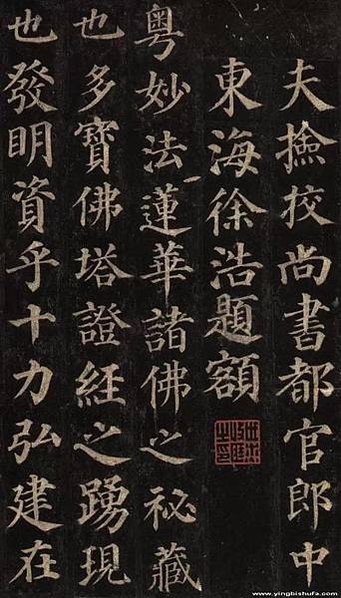 夫撿挍尚書都官郎中
東海徐浩題額
粵妙法蓮華諸佛之祕藏
也多寶佛塔證経之踴現
也發明資乎十力弘建在
www.yingbishufa.com